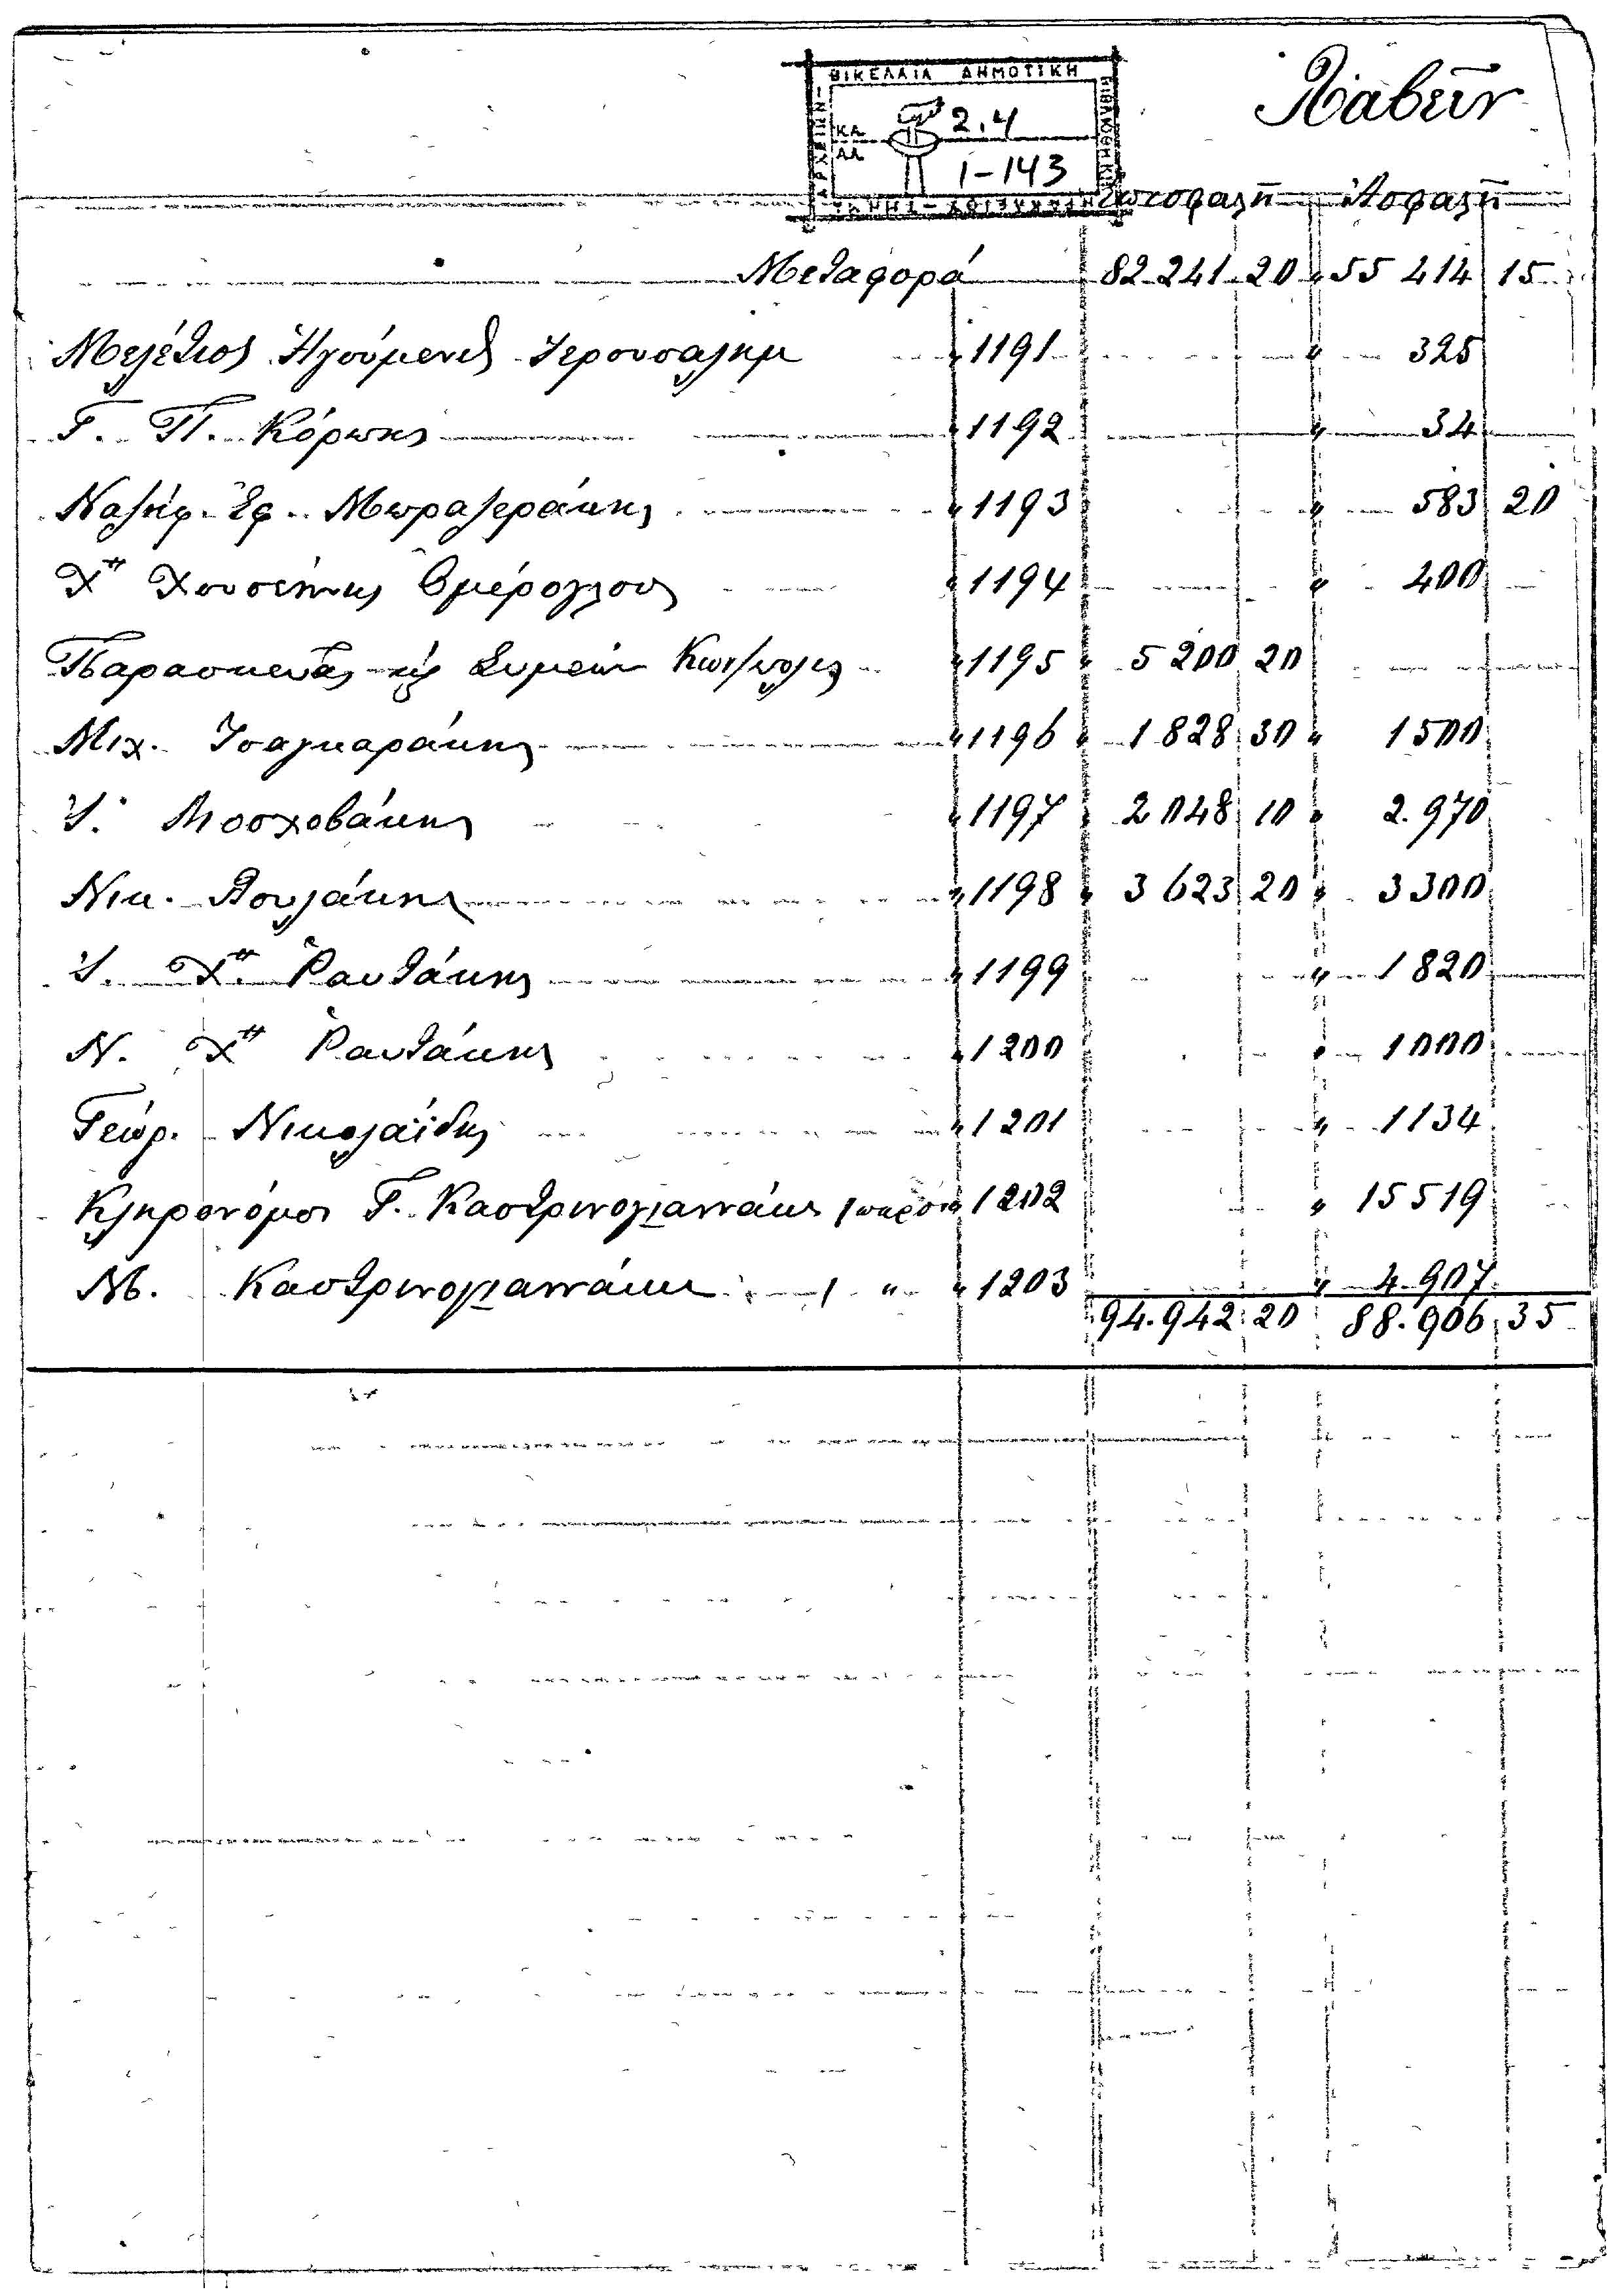 ΒΙΚΕΛΑΙΑ ΔΗΜΟΤΙΚΗ
2.4
1-143
Λαβεῖν
Ἀσφαλῆ
Μεταφορά 82 241 20 " 55 414 15
Μελέτιος Ἡγούμενος Ἱερουσαλημ " 1191 " 325
Γ. Π. Κόρπης " 1192 " 34
Ναζήφ Ἐφ. Μωραζεράκης " 1193 " 583 20
Χ" Χουσεΐνης Ὀμέρογλους " 1194 " 400
Παρασκευᾶς κ Συμεών " 1195 " 5 200 20
Μιχ. Τσαγκαράκης " 1196 " 1 828 30 " 1500
Ι. Μοσχοβάκης " 1197 " 2 048 10 " 2.970
Νικ. Λουλάκης " 1198 " 3 623 20 " 3300
Ι. Χ" Ραυτάκης " 1199 " 1820
Ν. Χ" Ραυτάκης " 1200 " 1000
Γεώρ. Νικολαΐδης " 1201 " 1134
Κληρονόμοι Γ. Καστρινογιαννάκη " 1202 " 15519
Μ. Καστρινογιαννάκη " " 1203 " 4.907
94.942 20 88.906 35